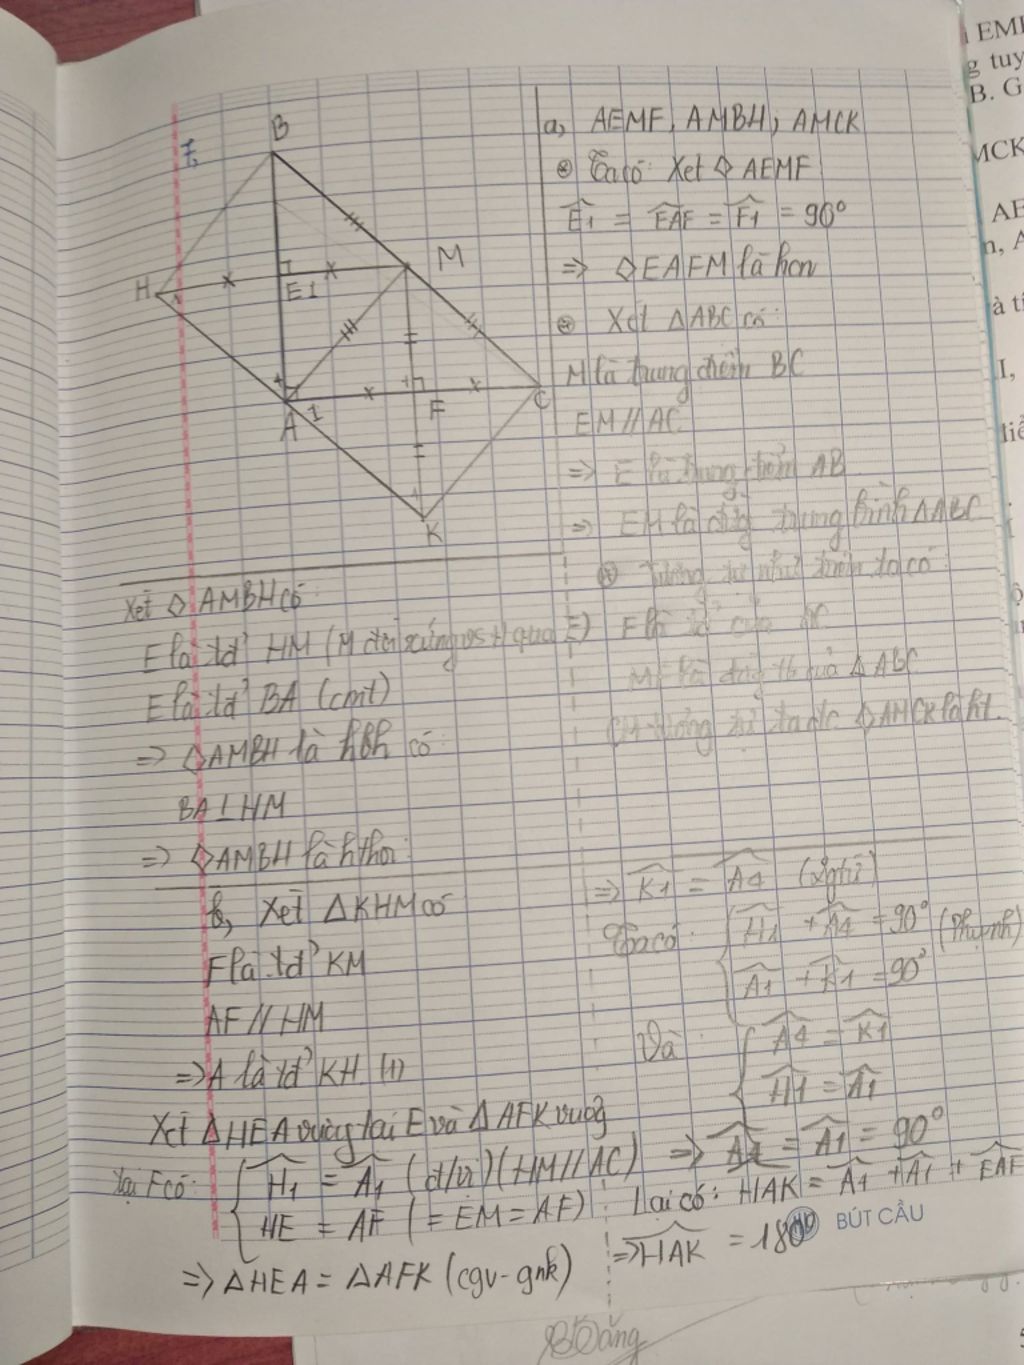 7,
B
H
E 1
M
A
1
F
C
K
a, AEMF, AMBH, AMCK
Ta có: Xét ◇ AEMF
Ê1 = EAF = F1 = 90°
=> ◇EAFM là hcn
Xét ΔABC có:
M là trung điểm BC
EM // AC
=> E là trung điểm AB
=> EM là đg trung bình ΔABC
Tương tự như trên ta có:
F là tđ' của AC
MF là đg tb của ΔABC
CM tương tự ta đc ◇AMCK là ht
Xét ◇ AMBH có:
E là tđ' HM (M đối xứng vs H qua E)
E là tđ' BA (cmt)
=> ◇AMBH là hbh có:
BA ⊥ HM
=> ◇AMBH là hthoi
b, Xét ΔKHM có
F là tđ' KM
AF // HM
=> A là tđ' KH (1)
Xét ΔHEA vuông tại E và ΔAFK vuông
tại F có: H1 = A1 (đ/vị) (HM // AC)
HE = AF (= EM = AF)
=> ΔHEA = ΔAFK (cgv - gnk)
=> K1 = A4 (2gtứ)
Ta có: H1 + A4 = 90° (Phụ nh)
A1 + K1 = 90°
Và A4 = K1
H1 = A1
=> A4 = A1 = 90°
Lại có: HAK = A4 + A1 + EAF
=> HAK = 180°
BÚT CẦU
i EMF
g tuy
B. G
MCK
AE
n, A
à ti
I,